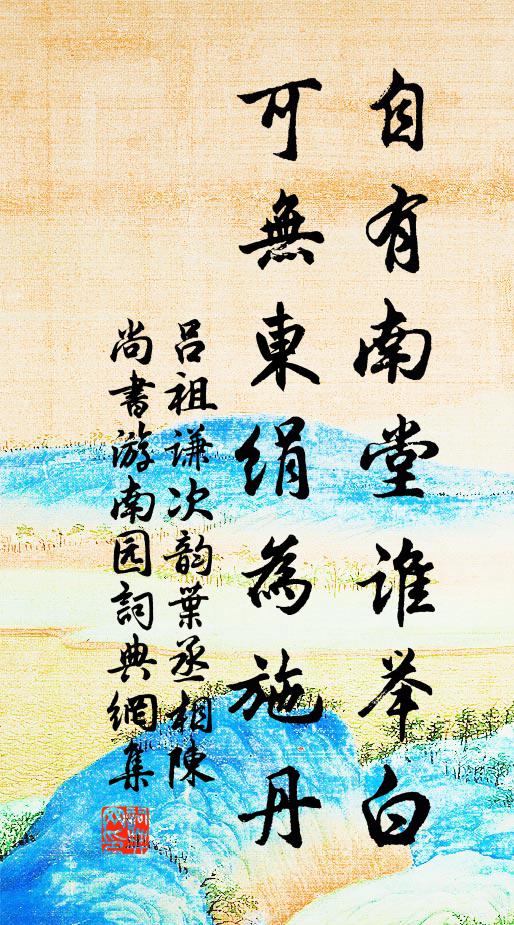 自有南堂谁举白
可無東绢為施丹
吕祖谦次韵葉丞相陳
尚書游南园詞典網集